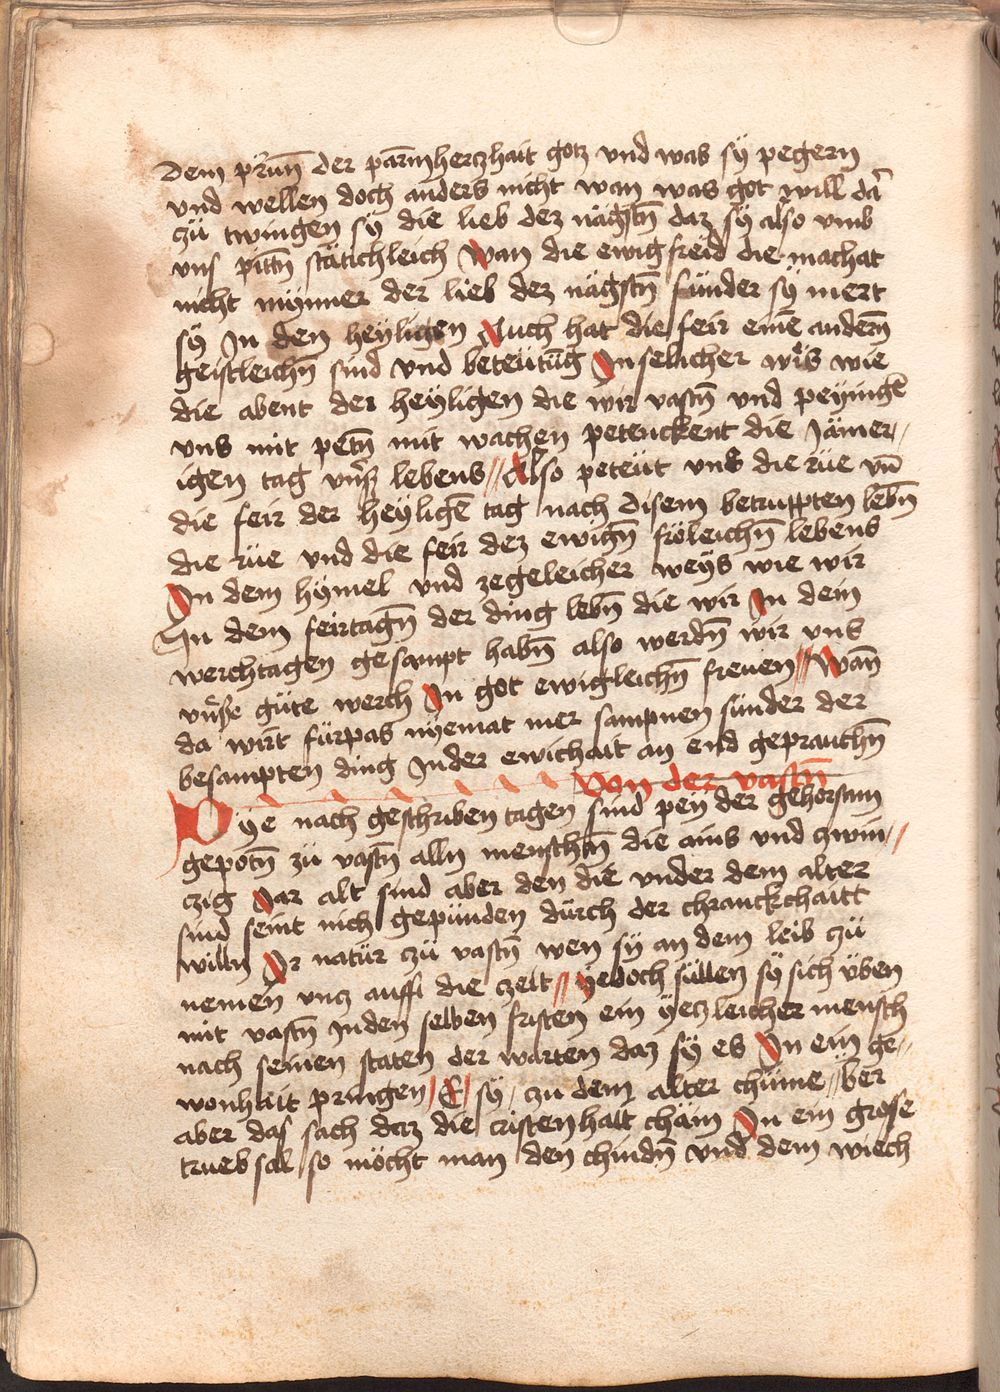 dem prūn der parmherczhait gotz vnd was sÿ pegern
vnd wellen doch anders nicht wan was got will da
zü twingen sÿ die lieb dez nägstn̄ daz sÿ also vmb
vns pittn̄ stätichleich Wan die ewig freid die machat
nicht mÿnner der lieb dez nägstn̄ sünder sÿ mert
sÿ In den heÿligen Auch hat die feir eine andern̄
geistleichn̄ sind vnd beteutūg In selicher weis wie
die abent der heÿligen die wir vastn̄ vnd peÿnigē
vns mit petn̄ mit wachen petenckent die Jämer//
igen tag vnsers lebens // Also peteüt vns die rüe vn̄
die feir der heÿligē tag nach disem betruppten lebn̄
die rüe vnd die feir dez ewign̄ fröleichn̄ lebens
In dem hÿmel vnd zegeleicher weÿs wie wir
In dem feirtagn̄ der ding lebn̄ die wir In dem
werchtagen gesampt habn̄ also werdn̄ wir vns
vnser güte werch In got ewigleichn̄ freuen // Wan̄
da wirt fürpas nÿemat mer sampnen sünder der
besampten ding Inder ewichait an end geprauchn̄
Von der vastn̄
DYe nach geschriben tagen sind pen der gehorsam
gepotn̄ zü vastn̄ alln menschn̄ die ains vnd zwin//
czig Jar alt sind aber den die vnder dem alter
sind seint nich gepünden dürch der chranckchaitt
willn Ir natür zü vastn̄ wen sÿ an dem leib zü
nemen vncz auff die czeit // ÿedoch süllen sÿ sich üben
mit vastn̄ Inden selben fristen ein ÿeczleicher mensch
nach seinen staten der warten daz sÿ es In ein ge//
wonhait pringen / E / sÿ / zu dem alter chüme // ber
aber das sach daz die cristenhait cham In ein grose
truebsal so möcht man den chindn̄ vnd dem wiech